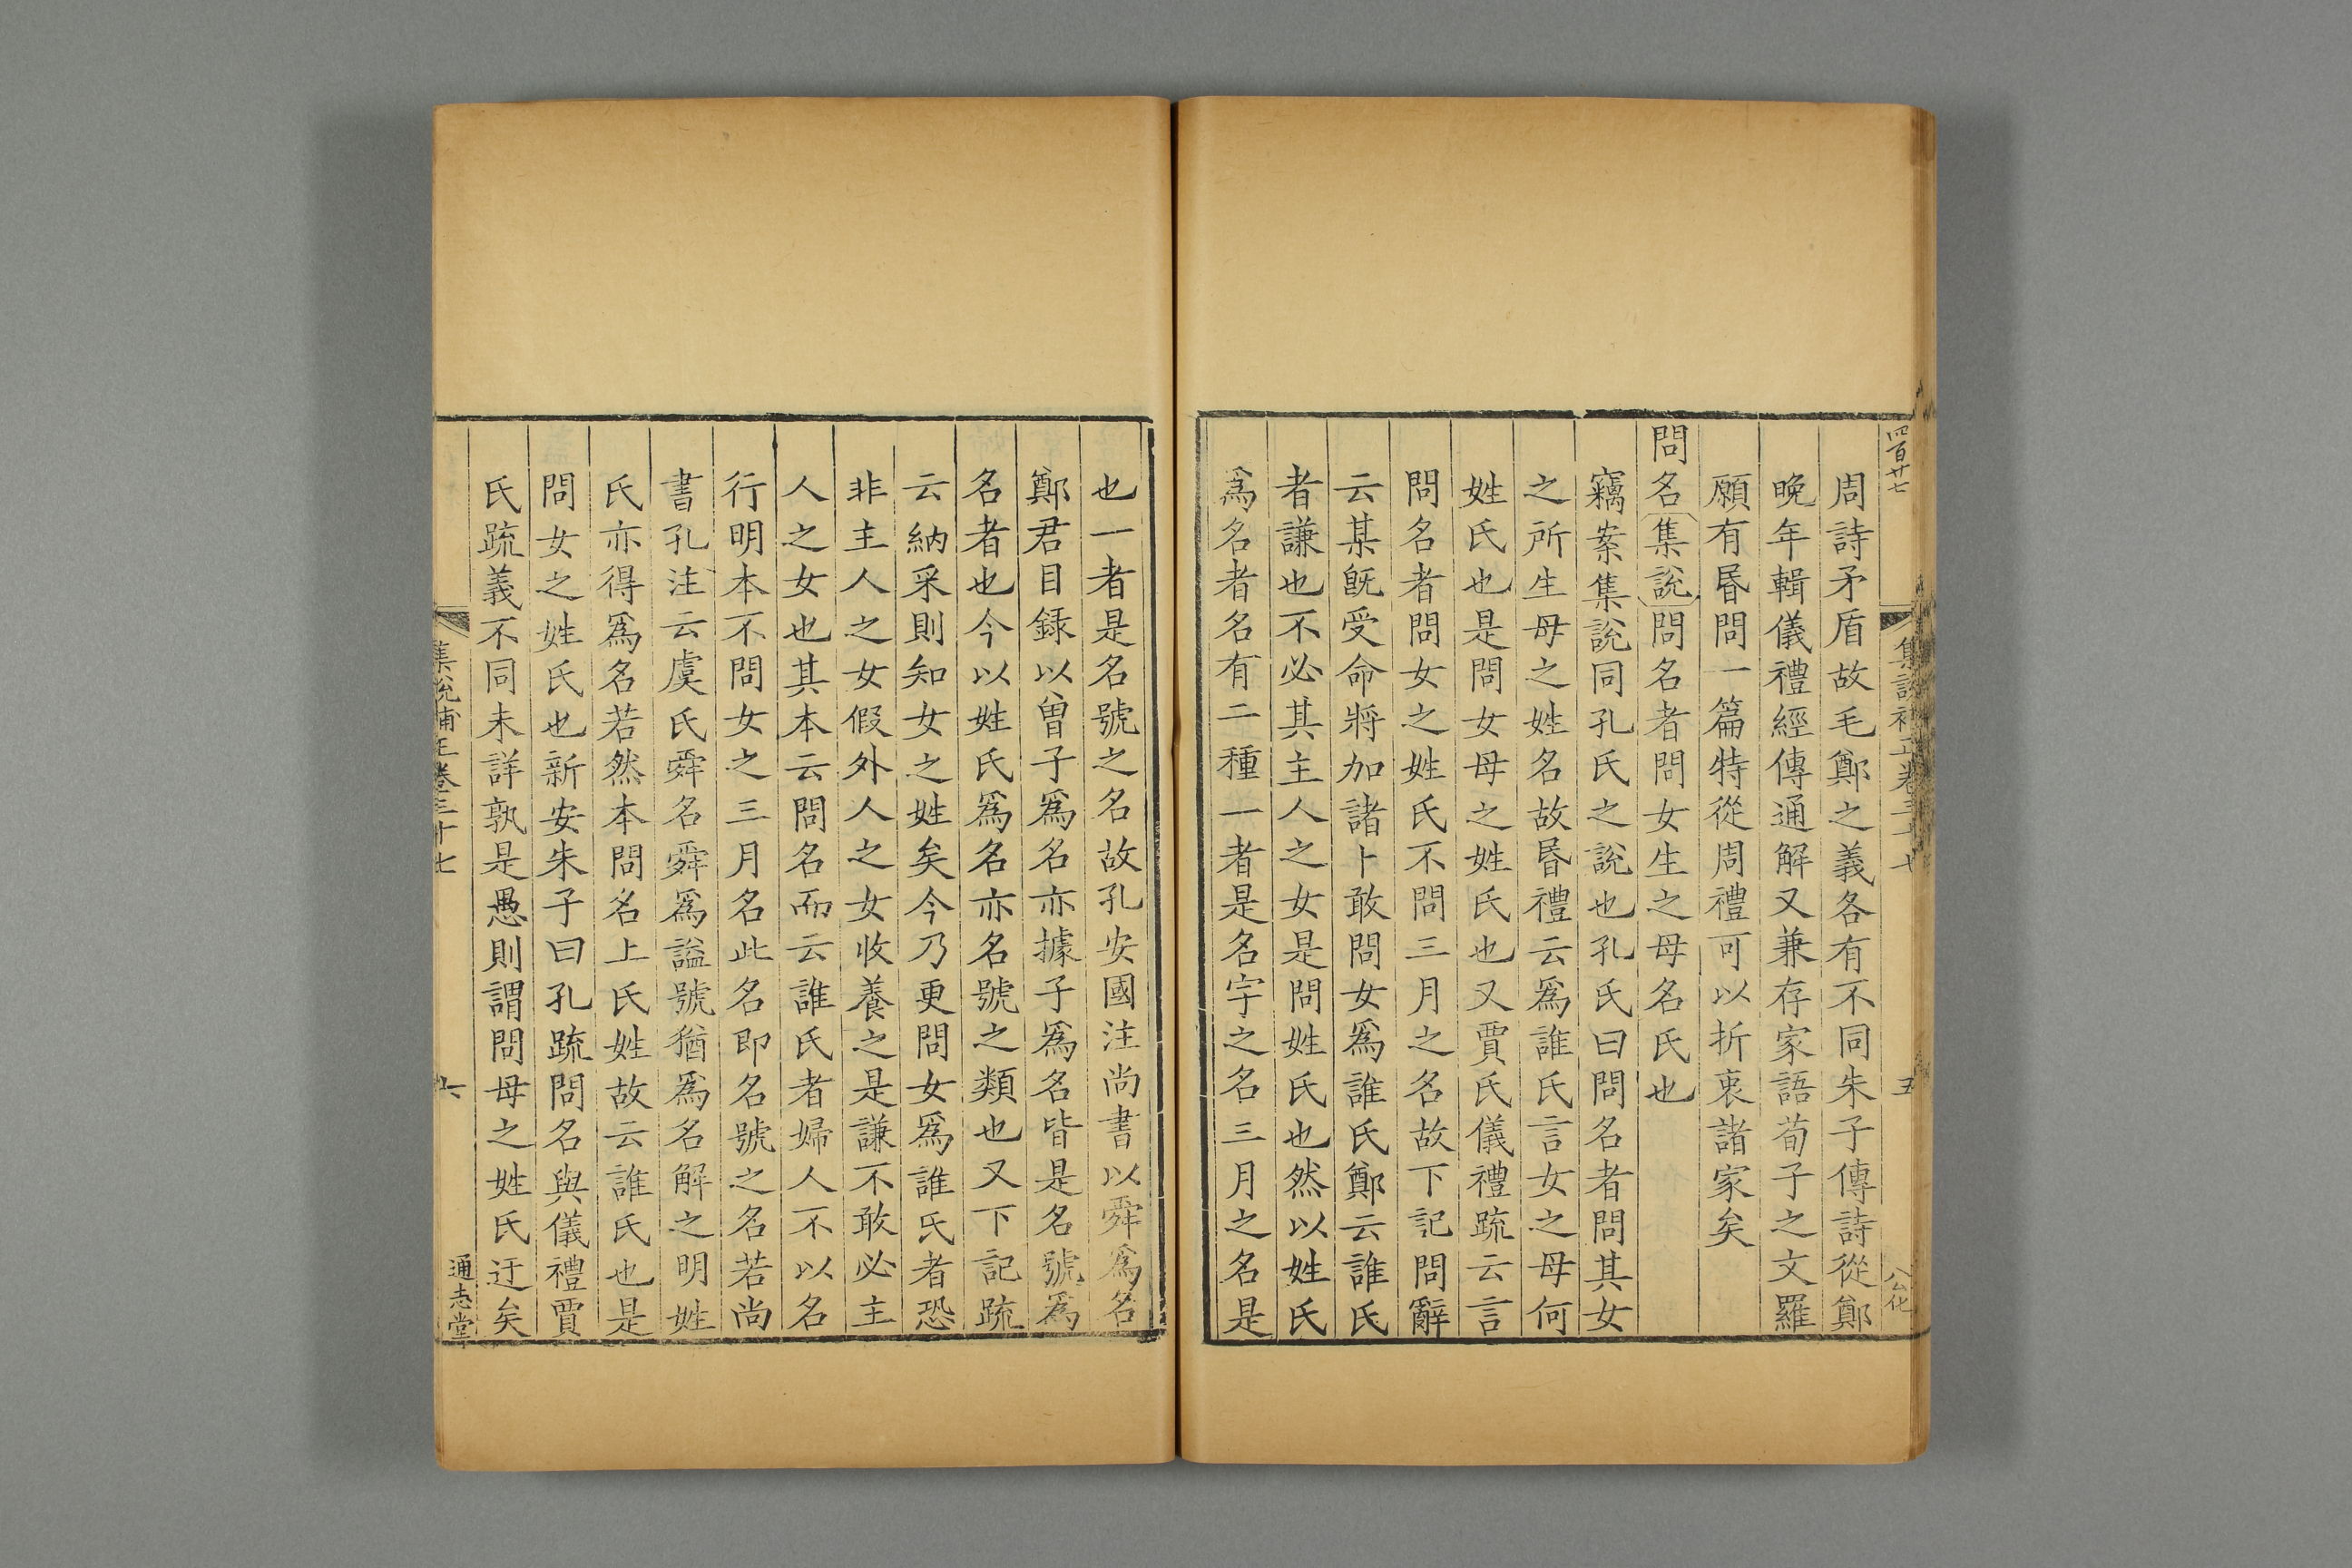 四百廿七
集說補正卷三十七
五
公化
周詩矛盾故毛鄭之義各有不同朱子傳詩從鄭
晚年輯儀禮經傳通解又兼存家語荀子之文羅
願有昬問一篇特從周禮可以折衷諸家矣
問名集說問名者問女生之母名氏也
竊案集說同孔氏之說也孔氏曰問名者問其女
之所生母之姓名故昬禮云爲誰氏言女之母何
姓氏也是問女母之姓氏也又賈氏儀禮疏云言
問名者問女之姓氏不問三月之名故下記問辭
云某旣受命將加諸卜敢問女爲誰氏鄭云誰氏
者謙也不必其主人之女是問姓氏也然以姓氏
爲名者名有二種一者是名字之名三月之名是
也一者是名號之名故孔安國注尚書以舜爲名
鄭君目録以曾子爲名亦據子爲名皆是名號爲
名者也今以姓氏爲名亦名號之類也又下記疏
云納采則知女之姓矣今乃更問女爲誰氏者恐
非主人之女假外人之女收養之是謙不敢必主
人之女也其本云問名而云誰氏者婦人不以名
行明本不問女之三月名此名即名號之名若尚
書孔注云虞氏舜名舜爲謚號猶爲名解之明姓
氏亦得爲名若然本問名上氏姓故云誰氏也是
問女之姓氏也新安朱子曰孔疏問名與儀禮賈
氏疏義不同未詳孰是愚則謂問母之姓氏迂矣
集說補正卷三十七
六
通志堂